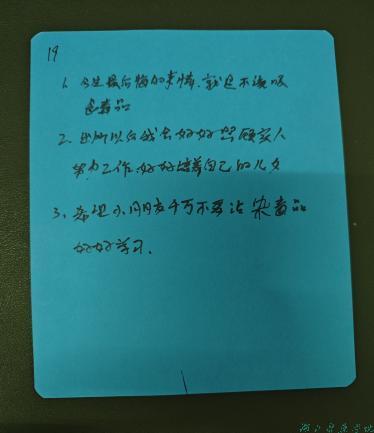 19
1. 今生最后悔的事情.就是不该吸
毒品
2. 出所以后我会好好照顾家人
努力工作.好好培养自己的儿女
3. 希望小朋友千万不要沾染毒品
好好学习.